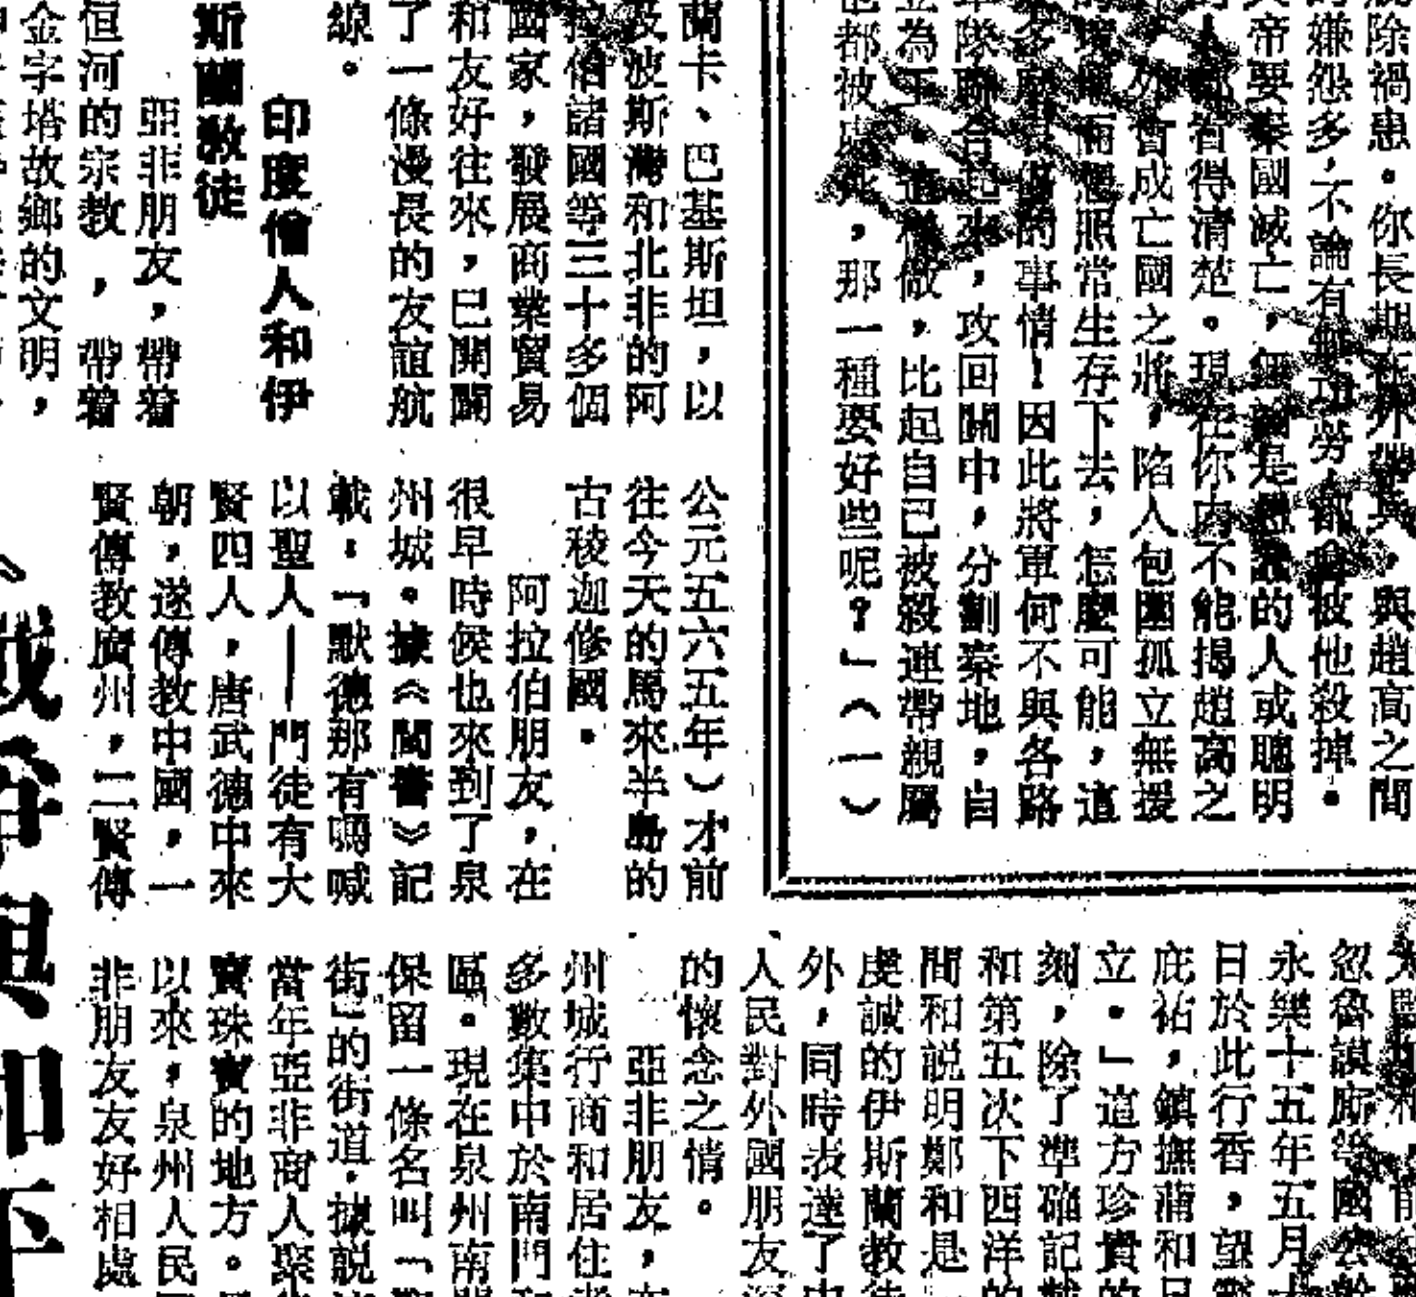 脫除禍患。你長期在外帶兵，與趙高之間
的嫌怨多，不論有無功勞，都會被他殺掉。
帝要秦國滅亡，無論是愚蠢的人或聰明
都看得清楚。現在你內不能揭趙高之
外會成亡國之將，陷人包圍孤立無援
兩想照常生存下去，怎麼可能，這
的事情！因此將軍何不與各路
軍隊聯合起來，攻回關中，分劃秦地，自
立為王。這樣做，比起自己被殺連帶親屬
也都被處死，那一種要好些呢？」（一）
蘭卡、巴基斯坦，以
及波斯灣和北非的阿
拉伯諸國等三十多個
國家，發展商業貿易
和友好往來，已開闢
了一條漫長的友誼航
線。
印度僧人和伊
斯蘭教徒
亞非朋友，帶着
恒河的宗教，帶着
金字塔故鄉的文明，
公元五六五年）才前
往今天的馬來半島的
古稜迦修國。
阿拉伯朋友，在
很早時候也來到了泉
州城。據《閩書》記
載：「默德那有嗎喊
以聖人——門徒有大
賢四人，唐武德中來
朝，遂傳教中國，一
賢傳教廣州，二賢傳
忽魯謨廝等國公幹
永樂十五年五月十
日於此行香，望靈
庇祐，鎮撫蒲和日
立。」這方珍貴的
刻，除了準確記載
和第五次下西洋的
間和說明鄭和是
虔誠的伊斯蘭教徒
外，同時表達了
人民對外國朋友深
的懷念之情。
亞非朋友，
州城行商和居住
多數集中於南門
區。現在泉州南
保留一條名叫「
街」的街道，據說
當年亞非商人聚
寶珠寶的地方。
以來，泉州人民
非朋友友好相處
戰爭與和平